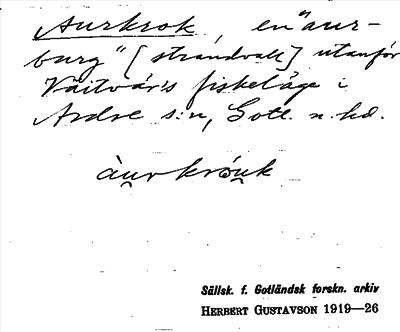 Aurkrok, en "aur-
burg" [strandvall] utanför
Vaitvärs fiskeläge i
Ardre s:n, Gotl. n. hd.
àu̯rkróu̯k
Sällsk. f. Gotländsk forskn. arkiv
HERBERT GUSTAVSON 1919—26